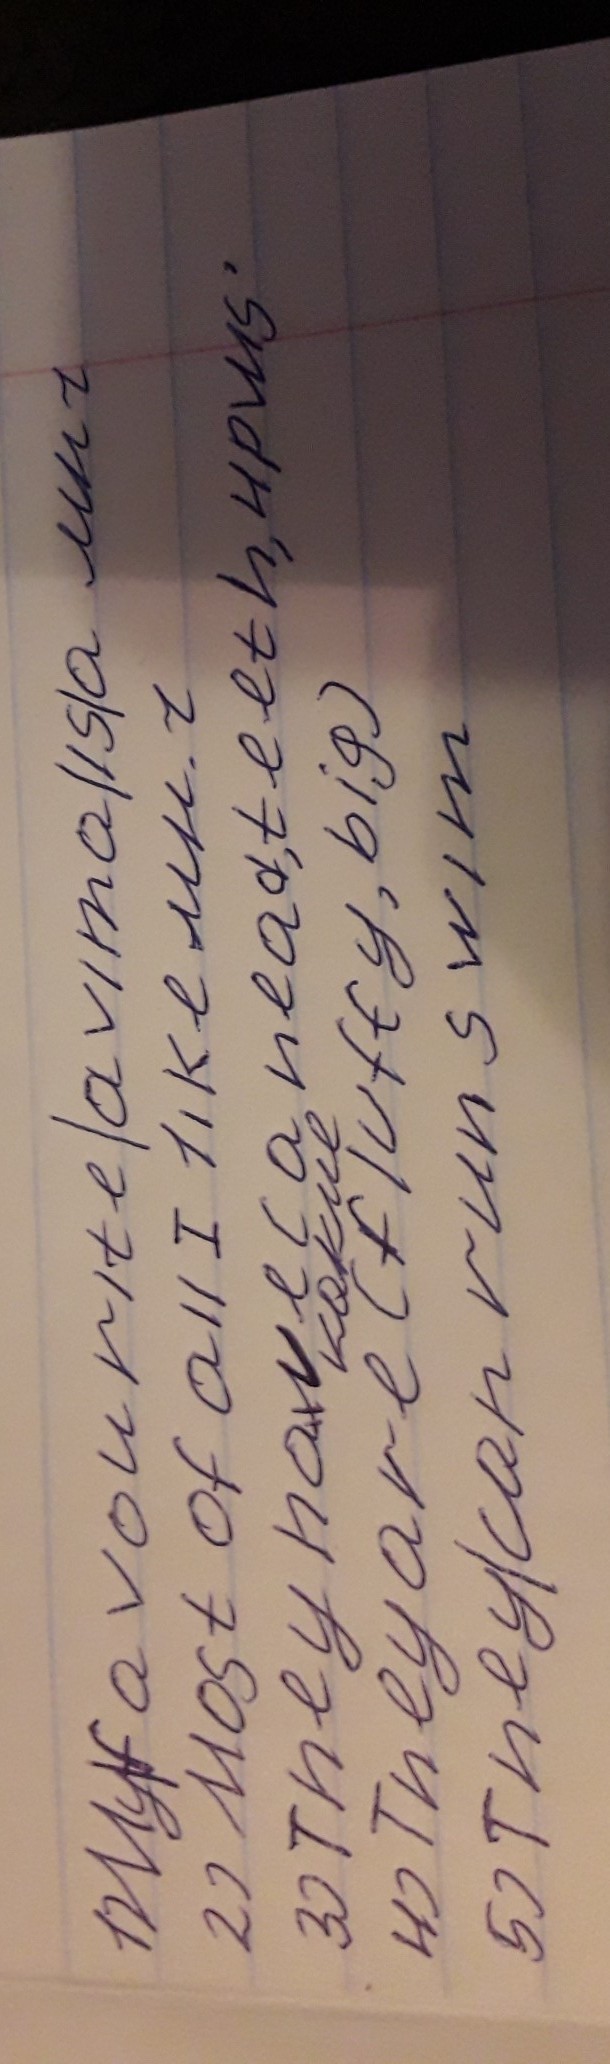 1) My favourite/animal/is/a
2) Most of all I like
3) They have (a head, teeth,
какие
4) They are (fluffy, big)
5) They/can run swim